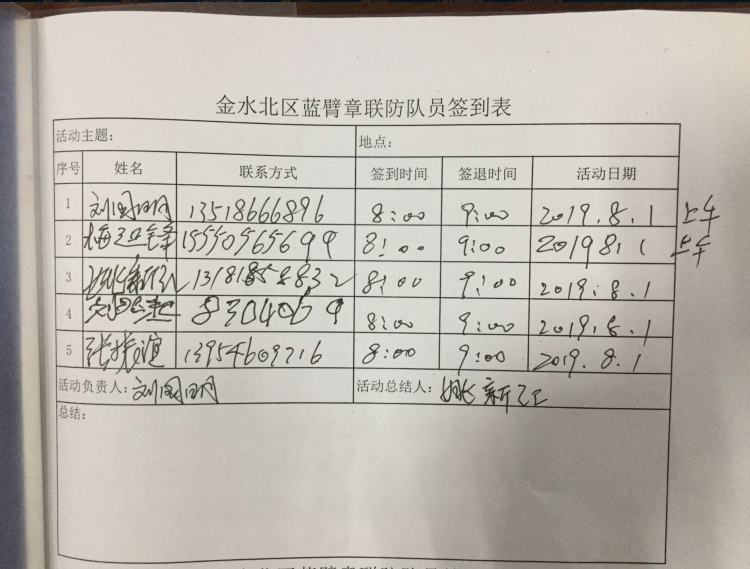 金水北区蓝臂章联防队员签到表
活动主题: 地点:
序号 姓名 联系方式 签到时间 签退时间 活动日期
1 刘国明 13518666896 8:00 9:00 2019.8.1 上午
2 梅亚锋 15550565699 8:00 9:00 2019 8.1 上午
3 姚新江 13181858832 8:00 9:00 2019.8.1
4 8:00 9:00 2019.8.1
5 张振谊 13954609216 8:00 9:00 2019.8.1
活动负责人: 刘国明 活动总结人: 姚新江
总结: